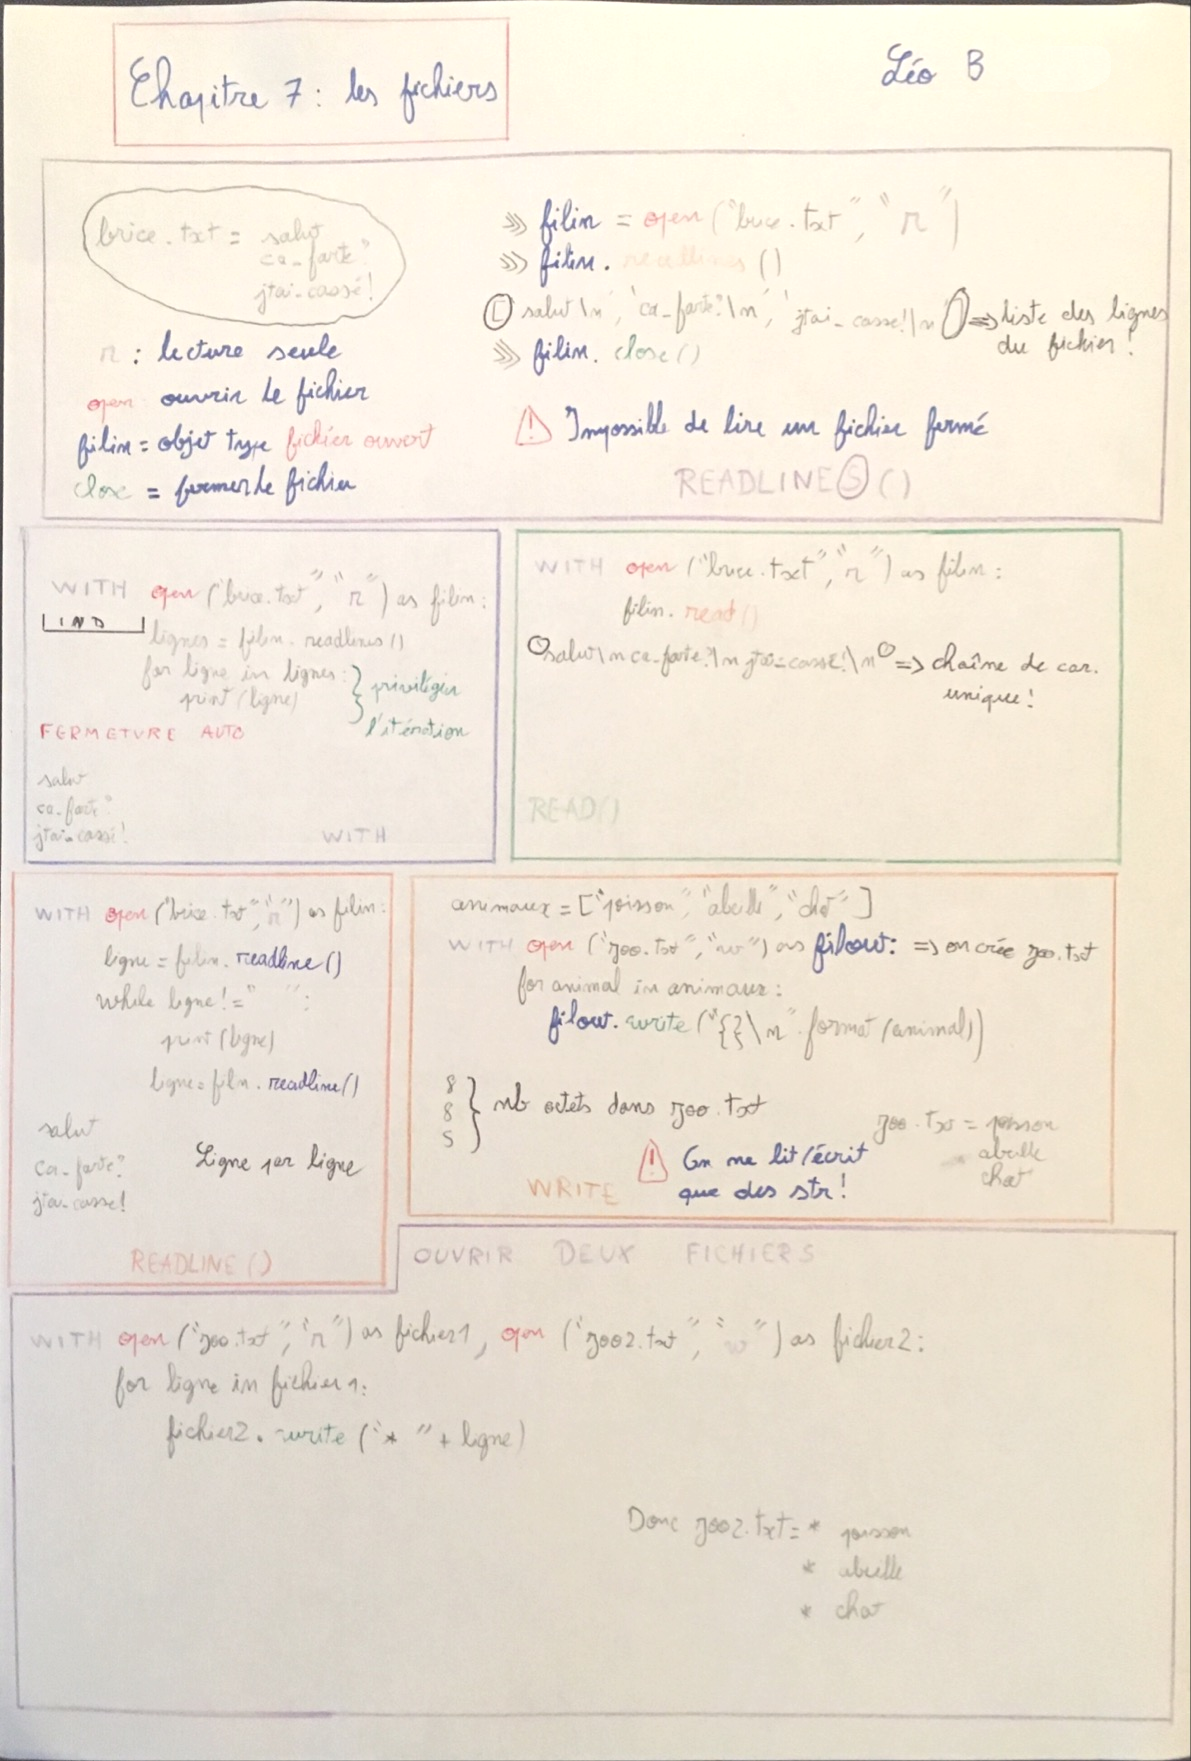 Chapitre 7 : les fichiers
Léo B
brice.txt = salut
ca_farte?
jtai_cassé!
r : lecture seule
open : ouvrir le fichier
filin = objet type fichier ouvert
close = fermer le fichier
>>> filin = open ("brice.txt", "r")
>>> filin. readlines ()
[ salut \n', 'ca_farte?\n', 'jtai_casse!\n' ] => liste des lignes
du fichier!
>>> filin. close ()
⚠ Impossible de lire un fichier fermé
READLINES ()
WITH open ("brice.txt", "r") as filin:
IND
lignes = filin. readlines ()
for ligne in lignes:
print (ligne)
} privilégier
l'itération
FERMETURE AUTO
salut
ca_farte?
jtai_cassé!
WITH
WITH open ("brice.txt", "r") as filin :
filin. read ()
'salut\n ca_farte?\n jtai_cassé!\n' => chaîne de car.
unique!
READ()
WITH open ("brice.txt", "r") as filin:
ligne = filin. readline ()
while ligne != " ":
print (ligne)
ligne = filin. readline ()
salut
ca_farte?
jtai_casse!
Ligne par ligne
READLINE ()
animaux = ["poisson", "abeille", "chat"]
WITH open ("zoo.txt", "w") as filout: => on crée zoo.txt
for animal in animaux :
filout. write ("{}\n". format (animal))
8
8
5
} nb octets dans zoo.txt
zoo.txt = poisson
abeille
chat
⚠ On ne lit/écrit
que des str!
WRITE
OUVRIR DEUX FICHIERS
WITH open ("zoo.txt", "r") as fichier1, open ("zoo2.txt", "w") as fichier2:
for ligne in fichier1:
fichier2. write ("* " + ligne)
Donc zoo2.txt = * poisson
* abeille
* chat